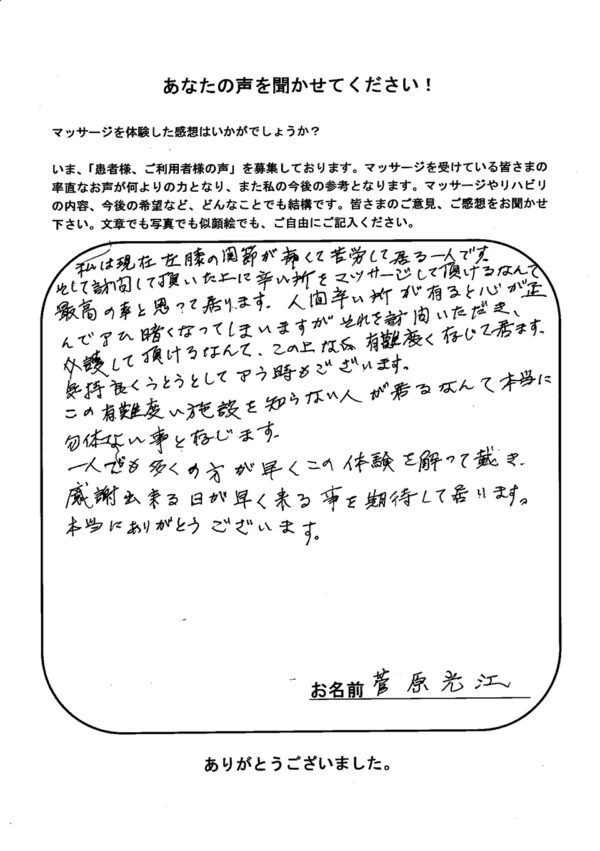 あなたの声を聞かせてください！
マッサージを体験した感想はいかがでしょうか？
いま、「患者様、ご利用者様の声」を募集しております。マッサージを受けている皆さまの
率直なお声が何よりの力となり、また私の今後の参考となります。マッサージやリハビリ
の内容、今後の希望など、どんなことでも結構です。皆さまのご意見、ご感想をお聞かせ
下さい。文章でも写真でも似顔絵でも、ご自由にご記入ください。
私は現在左膝の関節が痛くて苦労して居る一人です
そして訪問して頂いた上に辛い所をマッサージして頂けるなんて
最高の事と思って居ります。人間辛い所が有ると心が
んで 暗くなってしまいますがそれを訪問いただき、
介護して頂けるなんて、この上なく有難度く存じて居ます。
気持良くうとうとして 時もございます。
この有難度い施設を知らない人が居るなんて本当に
勿体ない事と存じます。
一人でも多くの方が早くこの体験を解って戴き、
感謝出来る日が早く来る事を期待して居ります。
本当にありがとうございます。
お名前 菅原光江
ありがとうございました。